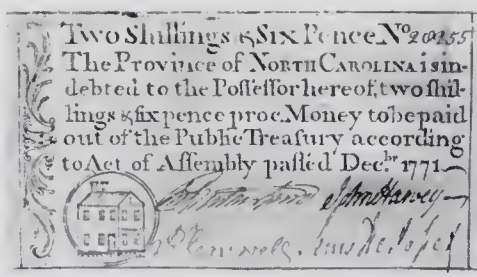 Two Shillings & Six Pence No 20255
The Province of NORTH CAROLINA is in-
debted to the Poſſeſſor hereof, two ſhil-
lings & ſix pence proc. Money to be paid
out of the Public Treaſury according
to Act of Aſſembly paſſed Dec.br 1771
John Harvey